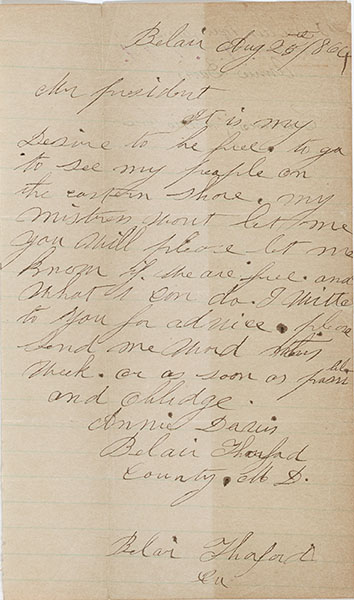 Belair Aug 25th 1864
Mr president
It is my
Desire to be free. to go
to see my people on
the eastern shore. my
mistress wont let me
you will please let me
know if we are free. and
what i can do. I write
to you for advice. please
send me word this
week. or as soon as possible
and oblidge.
Annie Davis
Belair Thoford
County, MD.
Belair Thoford